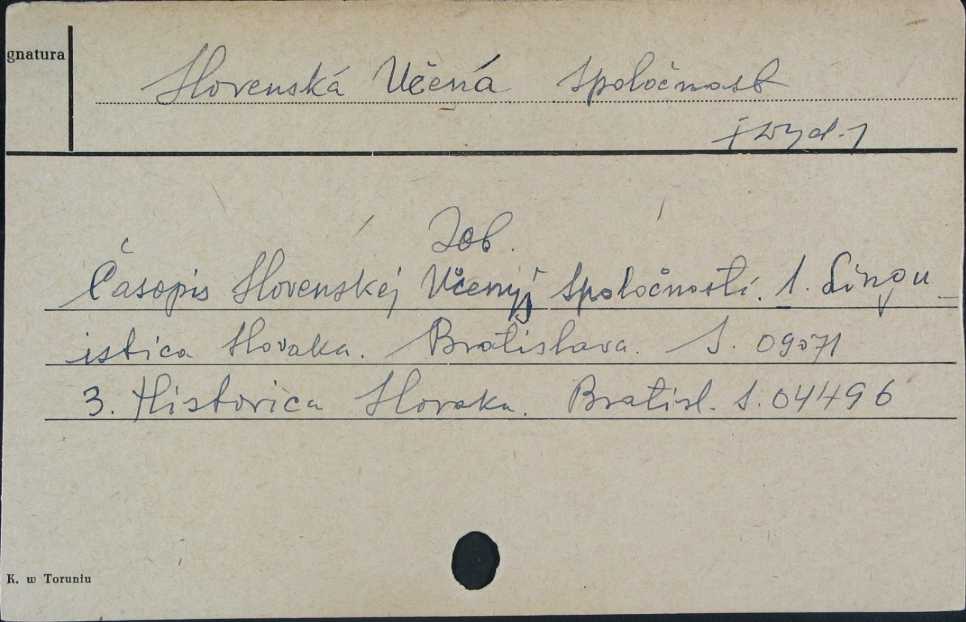 gnatura
Slovenská Učená Spoločnost
[wyd.]
Zob.
Časopis Slovenskej Učenej Spoločnosti. 1. Lingu-
istica Slovaka. Bratislava. S. 09071
3. Historica Slovaka. Bratisl. S. 04496
K. w Toruniu